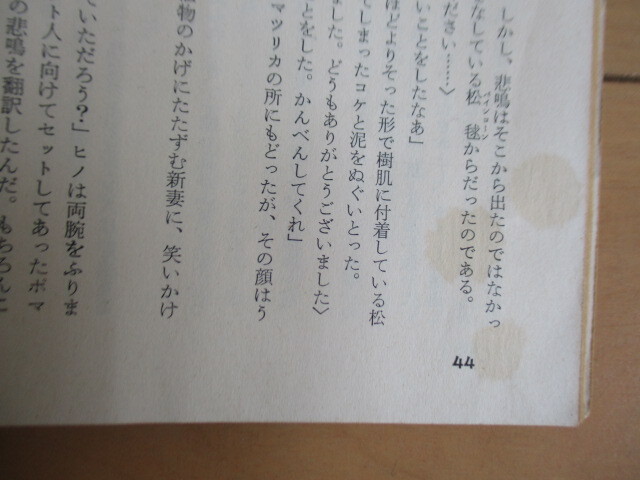 しかし、悲鳴はそこから出たのではなかっ
なしている松毬からだったのである。
パインコーン
ださい……〉
いことをしたなあ」
ほどよりそった形で樹肌に付着している松
てしまったコケと泥をぬぐいとった。
ました。どうもありがとうございました〉
とをした。かんべんしてくれ」
マツリカの所にもどったが、その顔はう
物のかげにたたずむ新妻に、笑いかけ
ていただろう？」ヒノは両腕をふりま
ト人に向けてセットしてあったポマ
の悲鳴を翻訳したんだ。もちろんこ
44